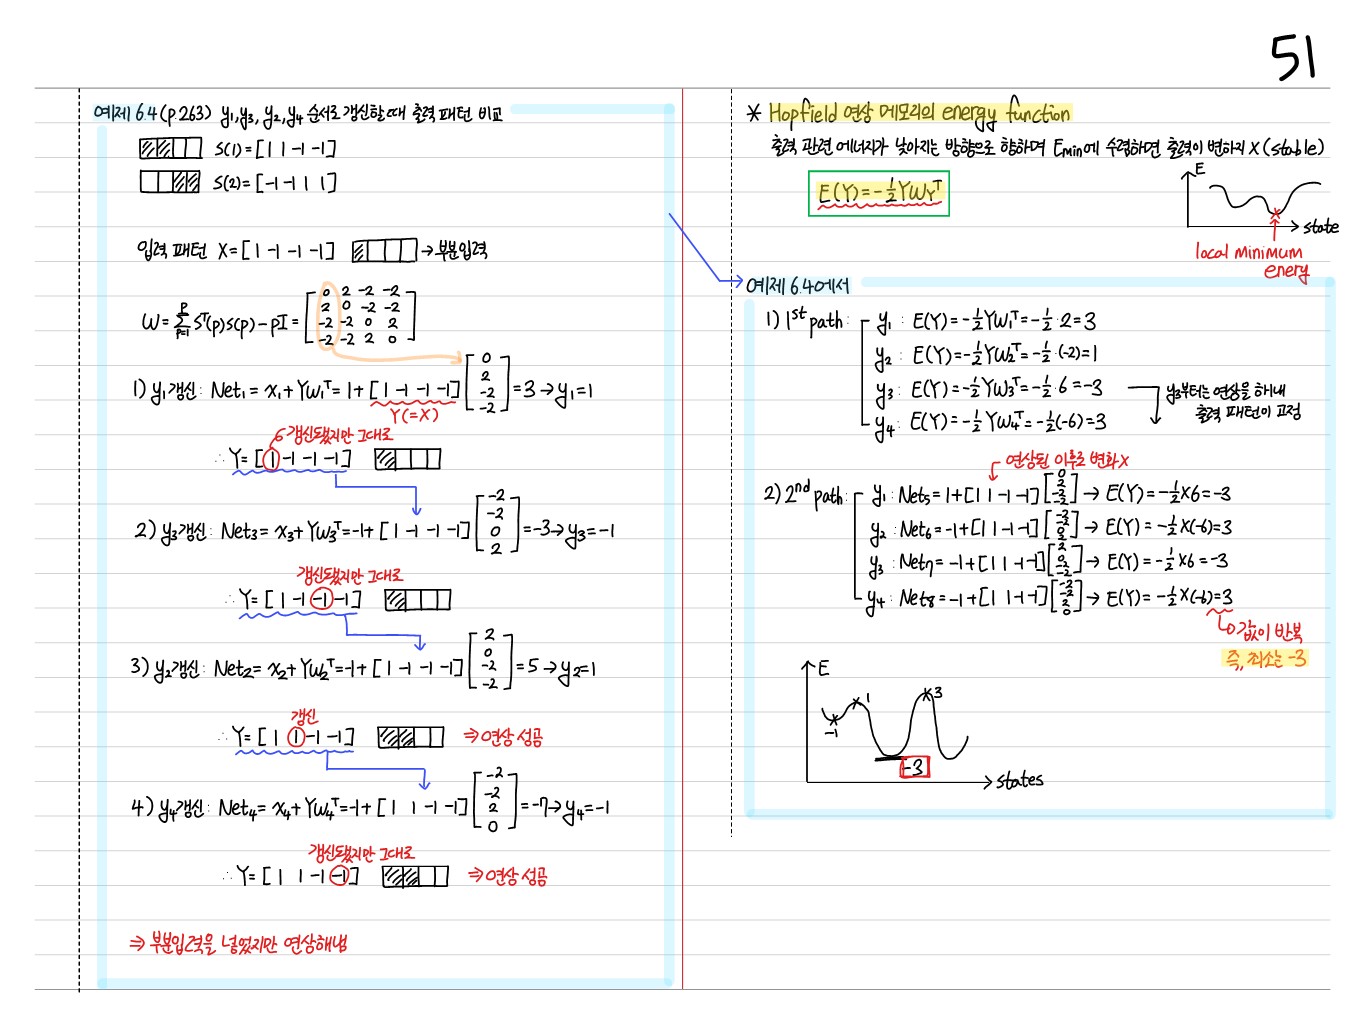 51
예제 6.4 (p.263) y₁, y₃, y₂, y₄ 순서로 갱신할 때 출력 패턴 비교
S(1) = [1 1 -1 -1]
S(2) = [-1 -1 1 1]
입력 패턴 X = [1 -1 -1 -1] → 부분입력
W = Σ_{p=1}^{P} Sᵀ(p)S(p) - PI = [0 2 -2 -2
2 0 -2 -2
-2 -2 0 2
-2 -2 2 0]
1) y₁갱신 : Net₁ = x₁ + YW₁ᵀ = 1 + [1 -1 -1 -1] [0 2 -2 -2] = 3 → y₁ = 1
Y(=X)
갱신됐지만 그대로
∴ Y = [1 -1 -1 -1]
2) y₃갱신 : Net₃ = x₃ + YW₃ᵀ = -1 + [1 -1 -1 -1] [-2 -2 0 2] = -3 → y₃ = -1
갱신됐지만 그대로
∴ Y = [1 -1 -1 -1]
3) y₂갱신 : Net₂ = x₂ + YW₂ᵀ = -1 + [1 -1 -1 -1] [2 0 -2 -2] = 5 → y₂ = 1
갱신
∴ Y = [1 1 -1 -1] ⇒ 연상 성공
4) y₄갱신 : Net₄ = x₄ + YW₄ᵀ = -1 + [1 1 -1 -1] [-2 -2 2 0] = -7 → y₄ = -1
갱신됐지만 그대로
∴ Y = [1 1 -1 -1] ⇒ 연상 성공
⇒ 부분입력을 넣었지만 연상해냄
* Hopfield 연상 메모리의 energy function
출력 관련 에너지가 낮아지는 방향으로 향하며 Emin에 수렴하면 출력이 변하지 X (stable)
E(Y) = -½YWYᵀ
E
state
local minimum
energy
예제 6.4에서
1) 1st path : y₁ : E(Y) = -½YW₁ᵀ = -½·2 = 3
y₂ : E(Y) = -½YW₂ᵀ = -½·(-2) = 1
y₃ : E(Y) = -½YW₃ᵀ = -½·6 = -3
y₄ : E(Y) = -½YW₄ᵀ = -½(-6) = 3
y₃부터는 연상을 해내
출력 패턴이 고정
연상된 이후로 변화 X
2) 2nd path : y₁ : Net₅ = 1 + [1 1 -1 -1] [0 2 -2 -2] → E(Y) = -½×6 = -3
y₂ : Net₆ = -1 + [1 1 -1 -1] → E(Y) = -½×(-6) = 3
y₃ : Net₇ = -1 + [1 1 -1 -1] → E(Y) = -½×6 = -3
y₄ : Net₈ = -1 + [1 1 -1 -1] [-2 -2 2 0] → E(Y) = -½×(-6) = 3
값이 반복
즉, 최소는 -3
E
-1
1
3
-3
states